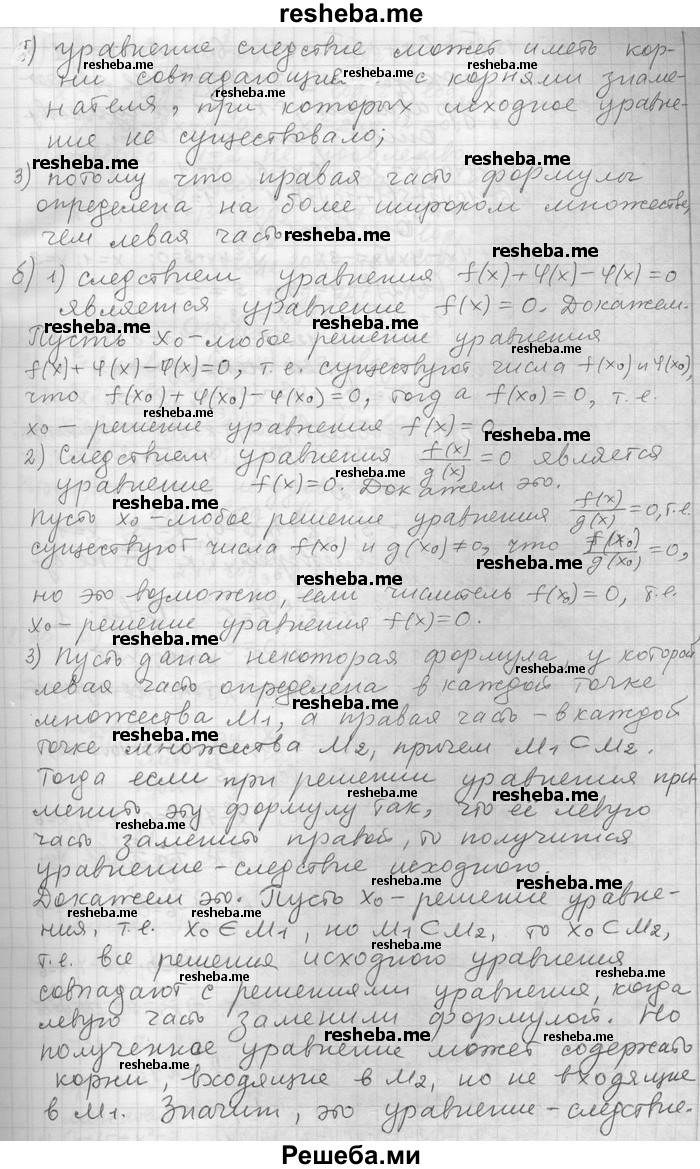 resheba.me
г) уравнение следствие может иметь кор-
ни совпадающие с корнями знаме-
нателя, при которых исходное уравне-
ние не существовало;
3) потому что правая часть формулы
определена на более широком множестве,
чем левая часть.
б) 1) следствием уравнения f(x)+φ(x)−φ(x)=0
является уравнение f(x)=0. Докажем.
Пусть x₀-любое решение уравнения
f(x)+φ(x)−φ(x)=0, т.е. существуют числа f(x₀) и φ(x₀),
что f(x₀)+φ(x₀)−φ(x₀)=0, тогда f(x₀)=0, т.е.
x₀ – решение уравнения f(x)=0.
2) Следствием уравнения f(x)/g(x)=0 является
уравнение f(x)=0. Докажем это.
Пусть x₀-любое решение уравнения f(x)/g(x)=0, т.е.
существуют числа f(x₀) и g(x₀)≠0, что f(x₀)/g(x₀)=0,
но это возможно, если числитель f(x₀)=0, т.е.
x₀ – решение уравнения f(x)=0.
3) Пусть дана некоторая формула, у которой
левая часть определена в каждой точке
множества M1, а правая часть – в каждой
точке множества M2, причем M1⊂M2.
Тогда если при решении уравнения при-
менить эту формулу так, что ее левую
часть заменить правой, то получится
уравнение-следствие исходного.
Докажем это. Пусть x₀ – решение уравне-
ния, т.е. x₀∈M1, но M1⊂M2, то x₀⊂M2,
т.е. все решения исходного уравнения
совпадают с решениями уравнения, когда
левую часть заменили формулой. Но
полученное уравнение может содержать
корни, входящие в M2, но не входящие
в M1. Значит, это уравнение-следствие.
Решеба.ми